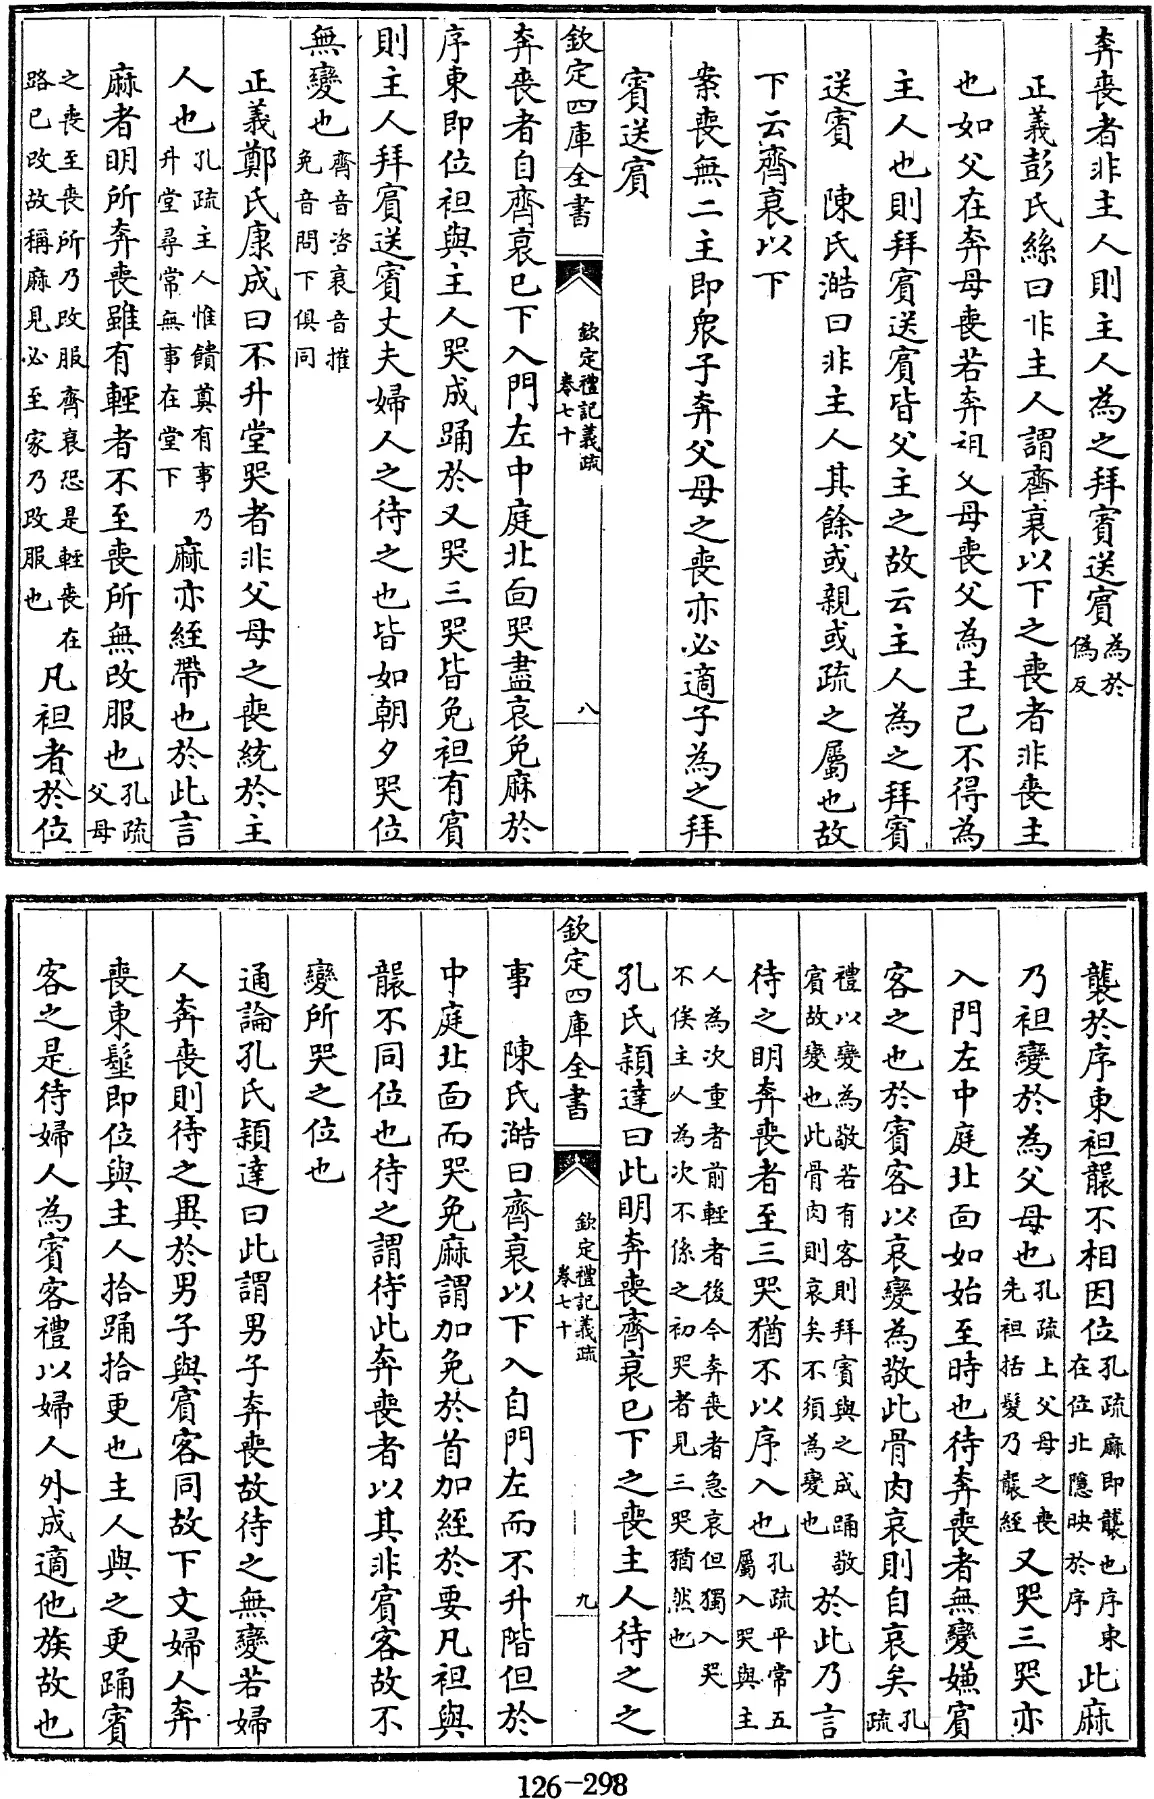 奔喪者非主人則主人為之拜賓送賓為於偽反
正義彭氏絲曰非主人謂齊衰以下之喪者非喪主
也如父在奔母喪若奔祖父母喪父為主己不得為
主人也則拜賓送賓皆父主之故云主人為之拜賓
送賓　陳氏澔曰非主人其餘或親或疏之屬也故
下云齊衰以下
案喪無二主即眾子奔父母之喪亦必適子為之拜
賓送賓
欽定四庫全書　欽定禮記義疏卷七十　八
奔喪者自齊衰已下入門左中庭北面哭盡哀免麻於
序東即位袒與主人哭成踊於又哭三哭皆免袒有賓
則主人拜賓送賓丈夫婦人之待之也皆如朝夕哭位
無變也齊音咨衰音摧免音問下俱同
正義鄭氏康成曰不升堂哭者非父母之喪統於主
人也孔疏主人惟饋奠有事乃升堂尋常無事在堂下麻亦絰帶也於此言
麻者明所奔喪雖有輕者不至喪所無改服也孔疏父母
之喪至喪所乃改服齊衰恐是輕喪在路已改故稱麻見必至家乃改服也凡袒者於位
襲於序東袒襲不相因位孔疏麻即襲也序東在位北隱映於序此麻
乃袒變於為父母也孔疏上父母之喪先袒括髮乃襲絰又哭三哭亦
入門左中庭北面如始至時也待奔喪者無變嫌賓
客之也於賓客以哀變為敬此骨肉哀則自哀矣孔疏
禮以變為敬若有客則拜賓與之成踊敬賓故變也此骨肉則哀矣不須為變也於此乃言
待之明奔喪者至三哭猶不以序入也孔疏平常五屬入哭與主
人為次重者前輕者後今奔喪者急哀但獨入哭不俟主人為次不係之初哭者見三哭猶然也
孔氏穎達曰此明奔喪齊衰已下之喪主人待之之
欽定四庫全書　欽定禮記義疏卷七十　九
事　陳氏澔曰齊衰以下入自門左而不升階但於
中庭北面而哭免麻謂加免於首加絰於要凡袒與
襲不同位也待之謂待此奔喪者以其非賓客故不
變所哭之位也
通論孔氏穎達曰此謂男子奔喪故待之無變若婦
人奔喪則待之異於男子與賓客同故下文婦人奔
喪東髽即位與主人拾踊拾更也主人與之更踊賓
客之是待婦人為賓客禮以婦人外成適他族故也
126-298